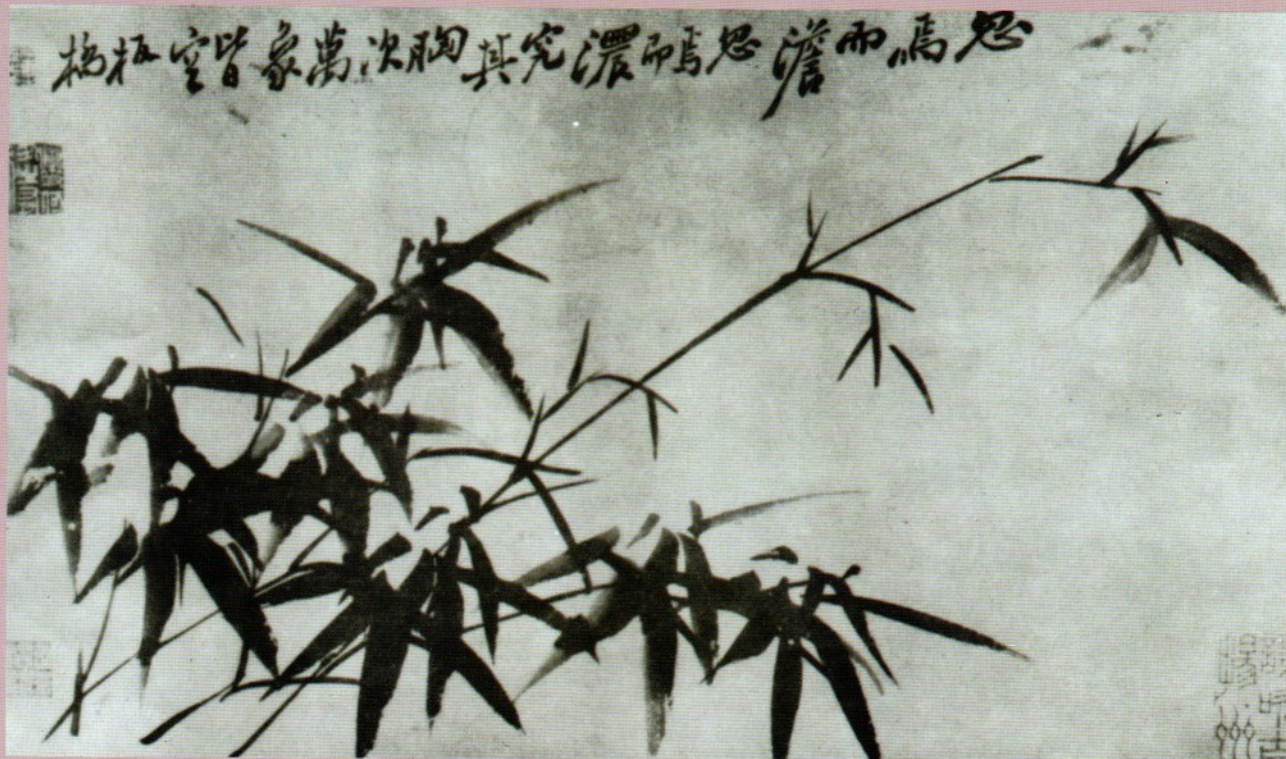 忽焉而澹忽焉而濃究其胸次萬象皆空板橋